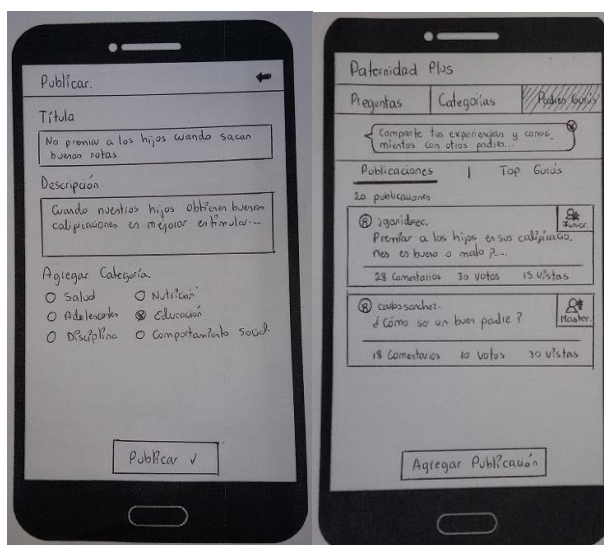 Publicar.
Título
No premiar a los hijos cuando sacan
buenas notas
Descripción
Cuando nuestros hijos obtienen buenas
calificaciones es mejorar estimular...
Agregar Categoría.
Salud
Nutrición
Adolescentes
Educación
Disciplina
Comportamiento Social.
Publicar
Paternidad Plus
Preguntas
Categorías
Padres Gurús
Comparte tus experiencias y conoci_
mientos con otros padres...
Publicaciones | Top Gurús
20 publicaciones
Junior
Premiar a los hijos en sus calificacio_
nes es bueno o malo ?...
28 Comentarios 30 votos 15 vistas
carlossanchez.
Master.
¿Cómo ser un buen padre ?
18 Comentarios 10 Votos 30 vistas
Agregar Publicación